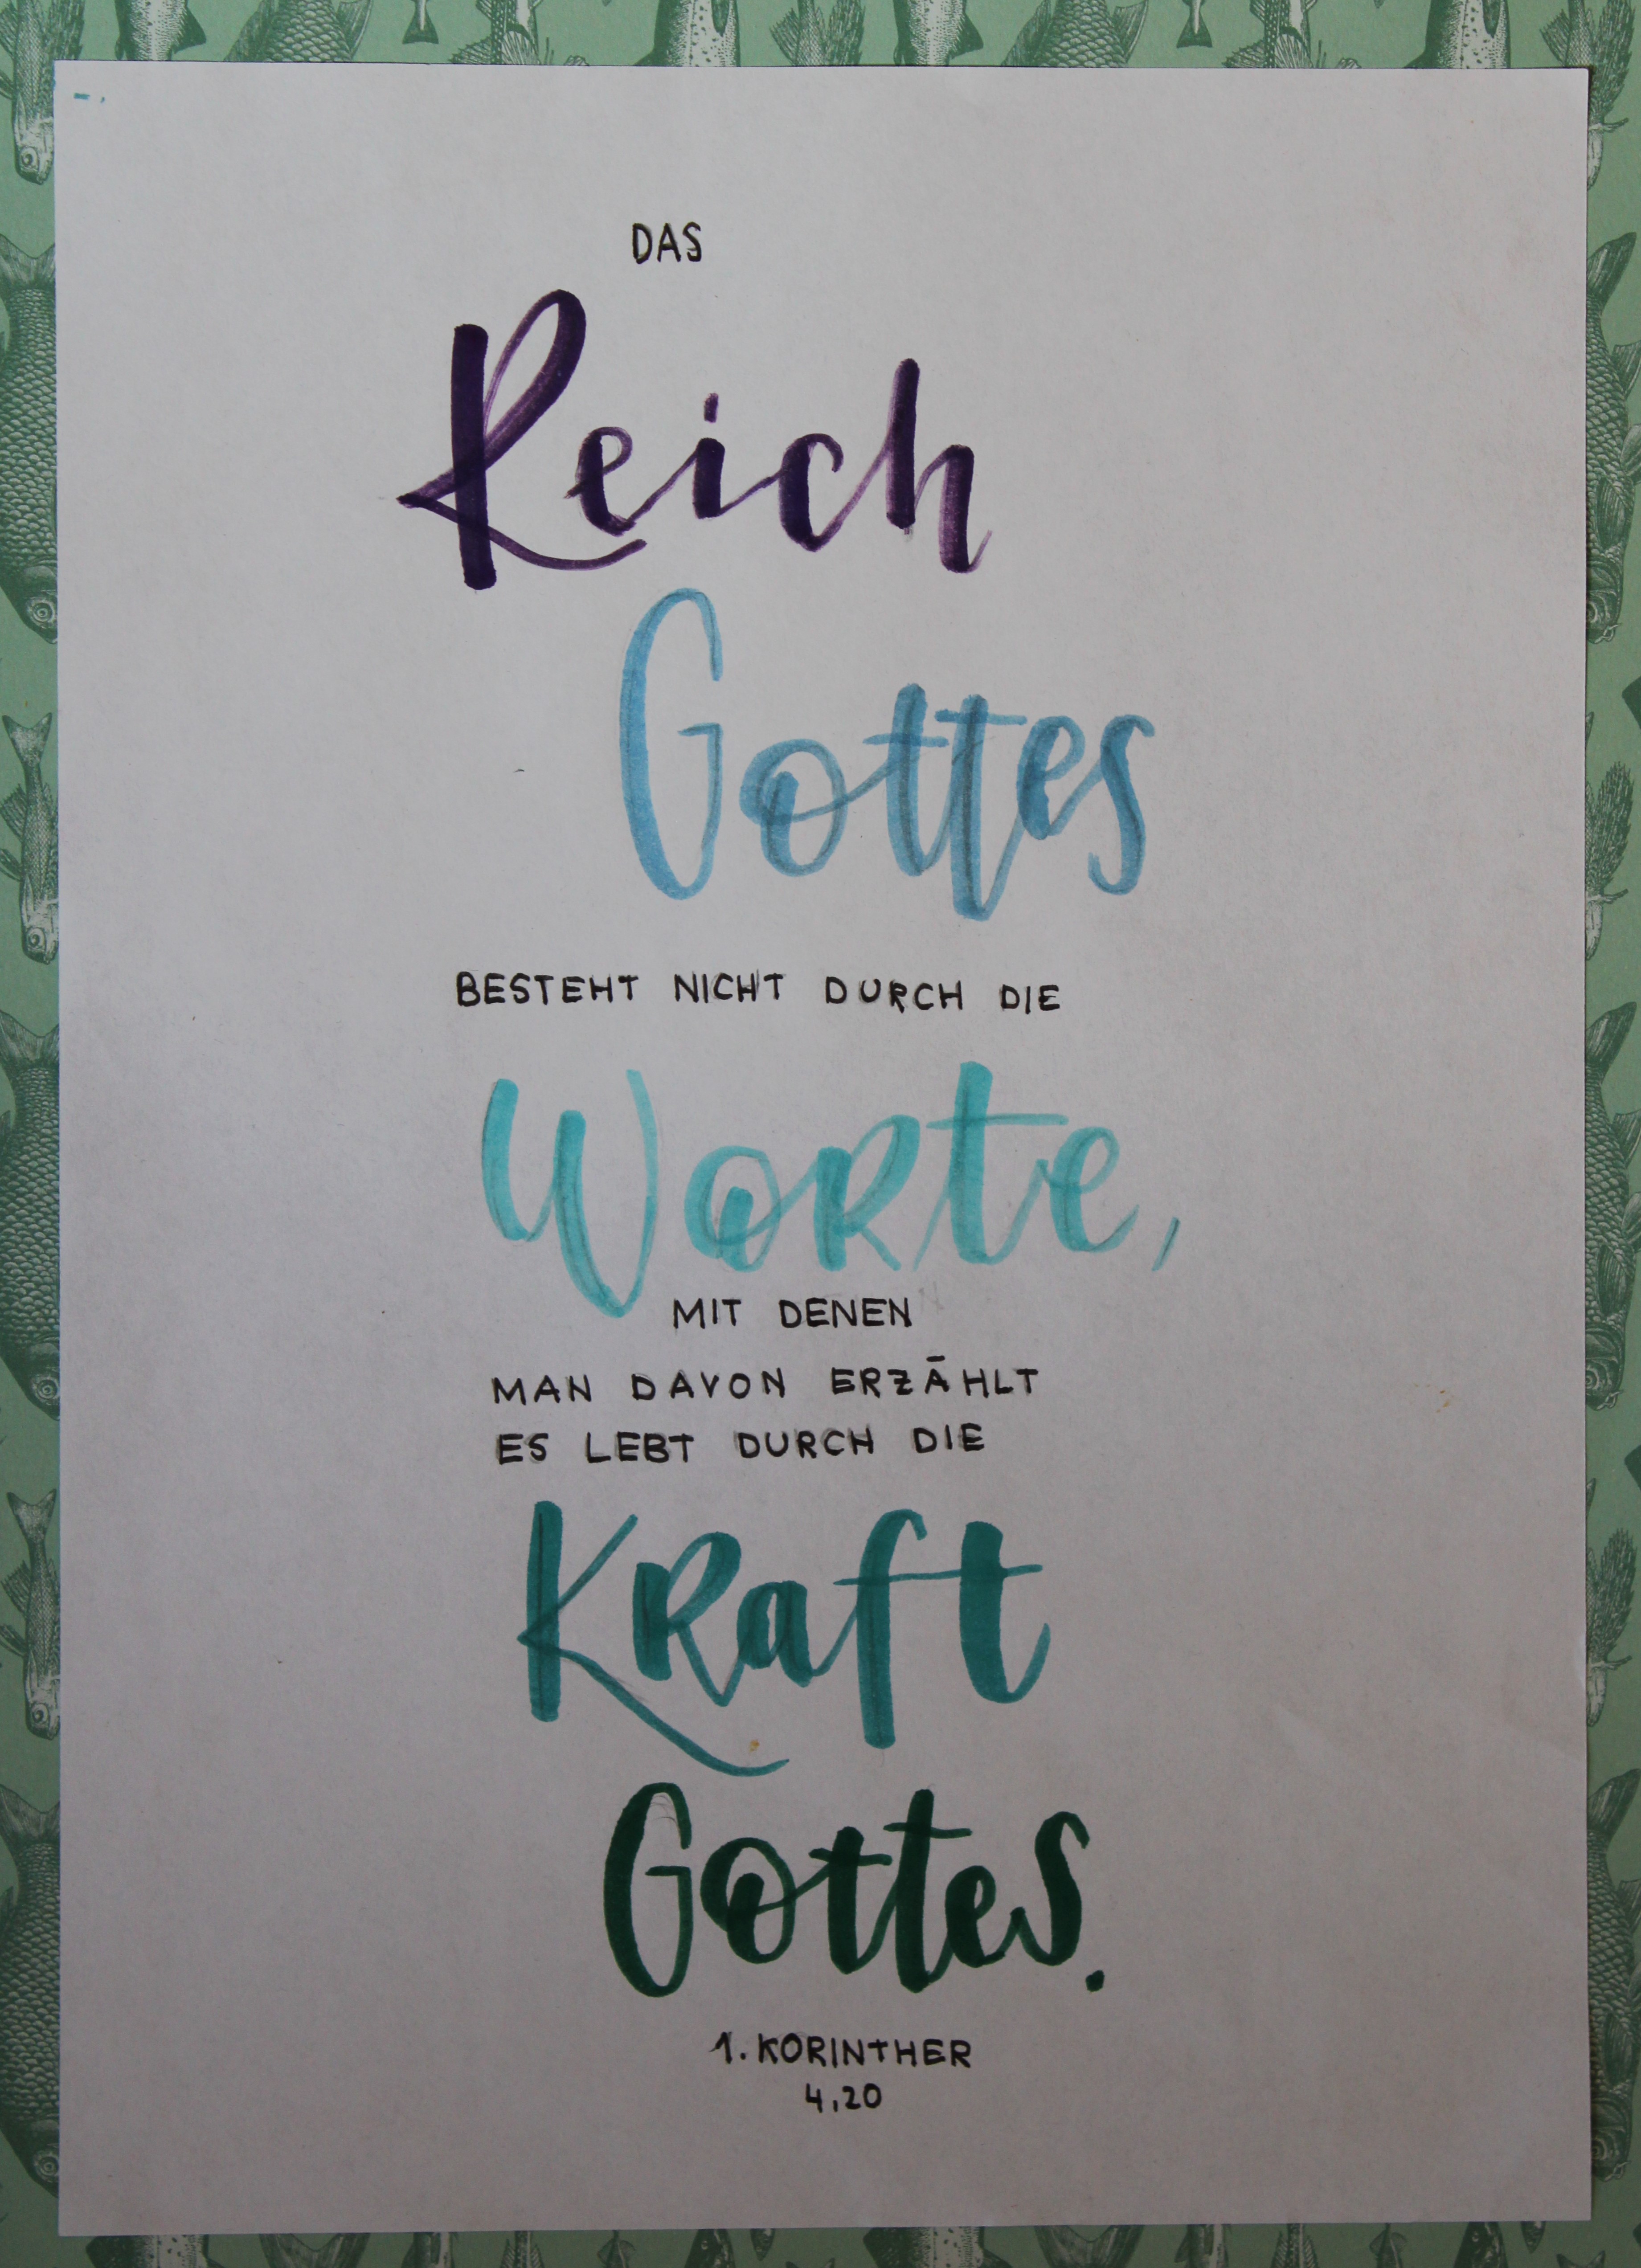 DAS
Reich
Gottes
BESTEHT NICHT DURCH DIE
WoRte,
MIT DENEN
MAN DAVON ERZÄHLT
ES LEBT DURCH DIE
KRaft
Gottes.
1. KORINTHER
4,20